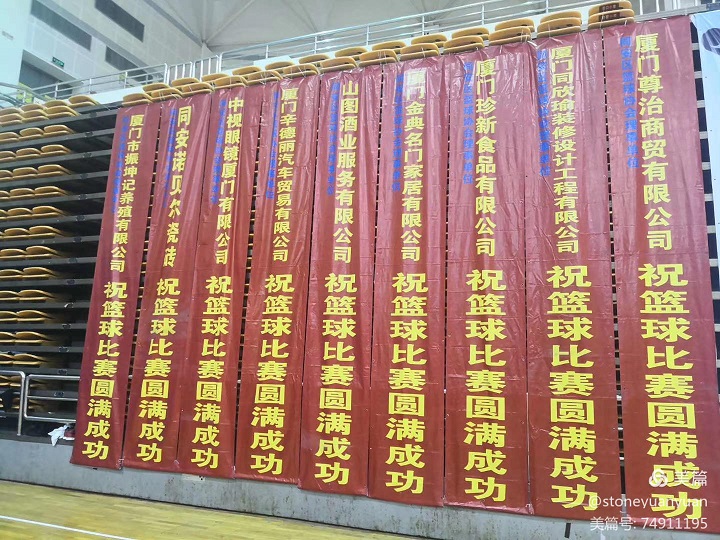 厦门市振坤记养殖有限公司 祝篮球比赛圆满成功
同安诺贝尔瓷砖 祝篮球比赛圆满成功
中视眼镜厦门有限公司 祝篮球比赛圆满成功
厦门辛德丽汽车贸易有限公司 祝篮球比赛圆满成功
山图酒业服务有限公司 祝篮球比赛圆满成功
厦门金典名门家居有限公司 祝篮球比赛圆满成功
厦门珍新食品有限公司 祝篮球比赛圆满成功
厦门同欣瑜装修设计工程有限公司 祝篮球比赛圆满成功
厦门尊治商贸有限公司 祝篮球比赛圆满成功
美篇
@stoneyuanyuan
美篇号: 74911195